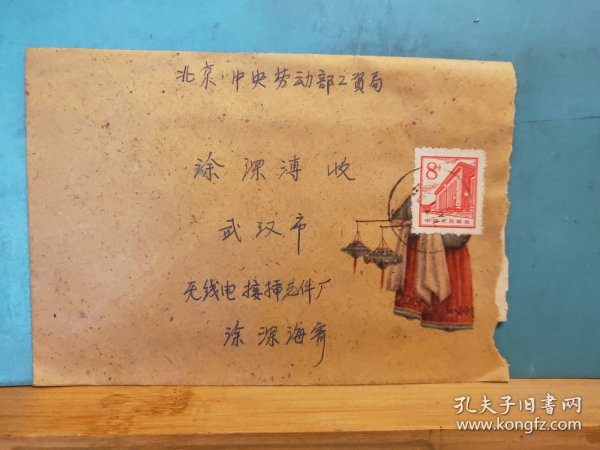 北京:中央劳动部工資局
涂深溥收
武汉市
无线电接插元件厂
涂深海寄
8分
中国人民邮政
孔夫子旧书网
www.kongfz.com